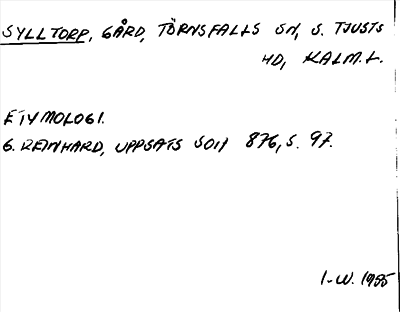 SYLLTORP, GÅRD, TÖRNSFALLS SN, S. TJUSTS
HD, KALM.L.
ETYMOLOGI.
G. REINHARD, UPPSATS SOII 876, S. 97.
I-W. 1985